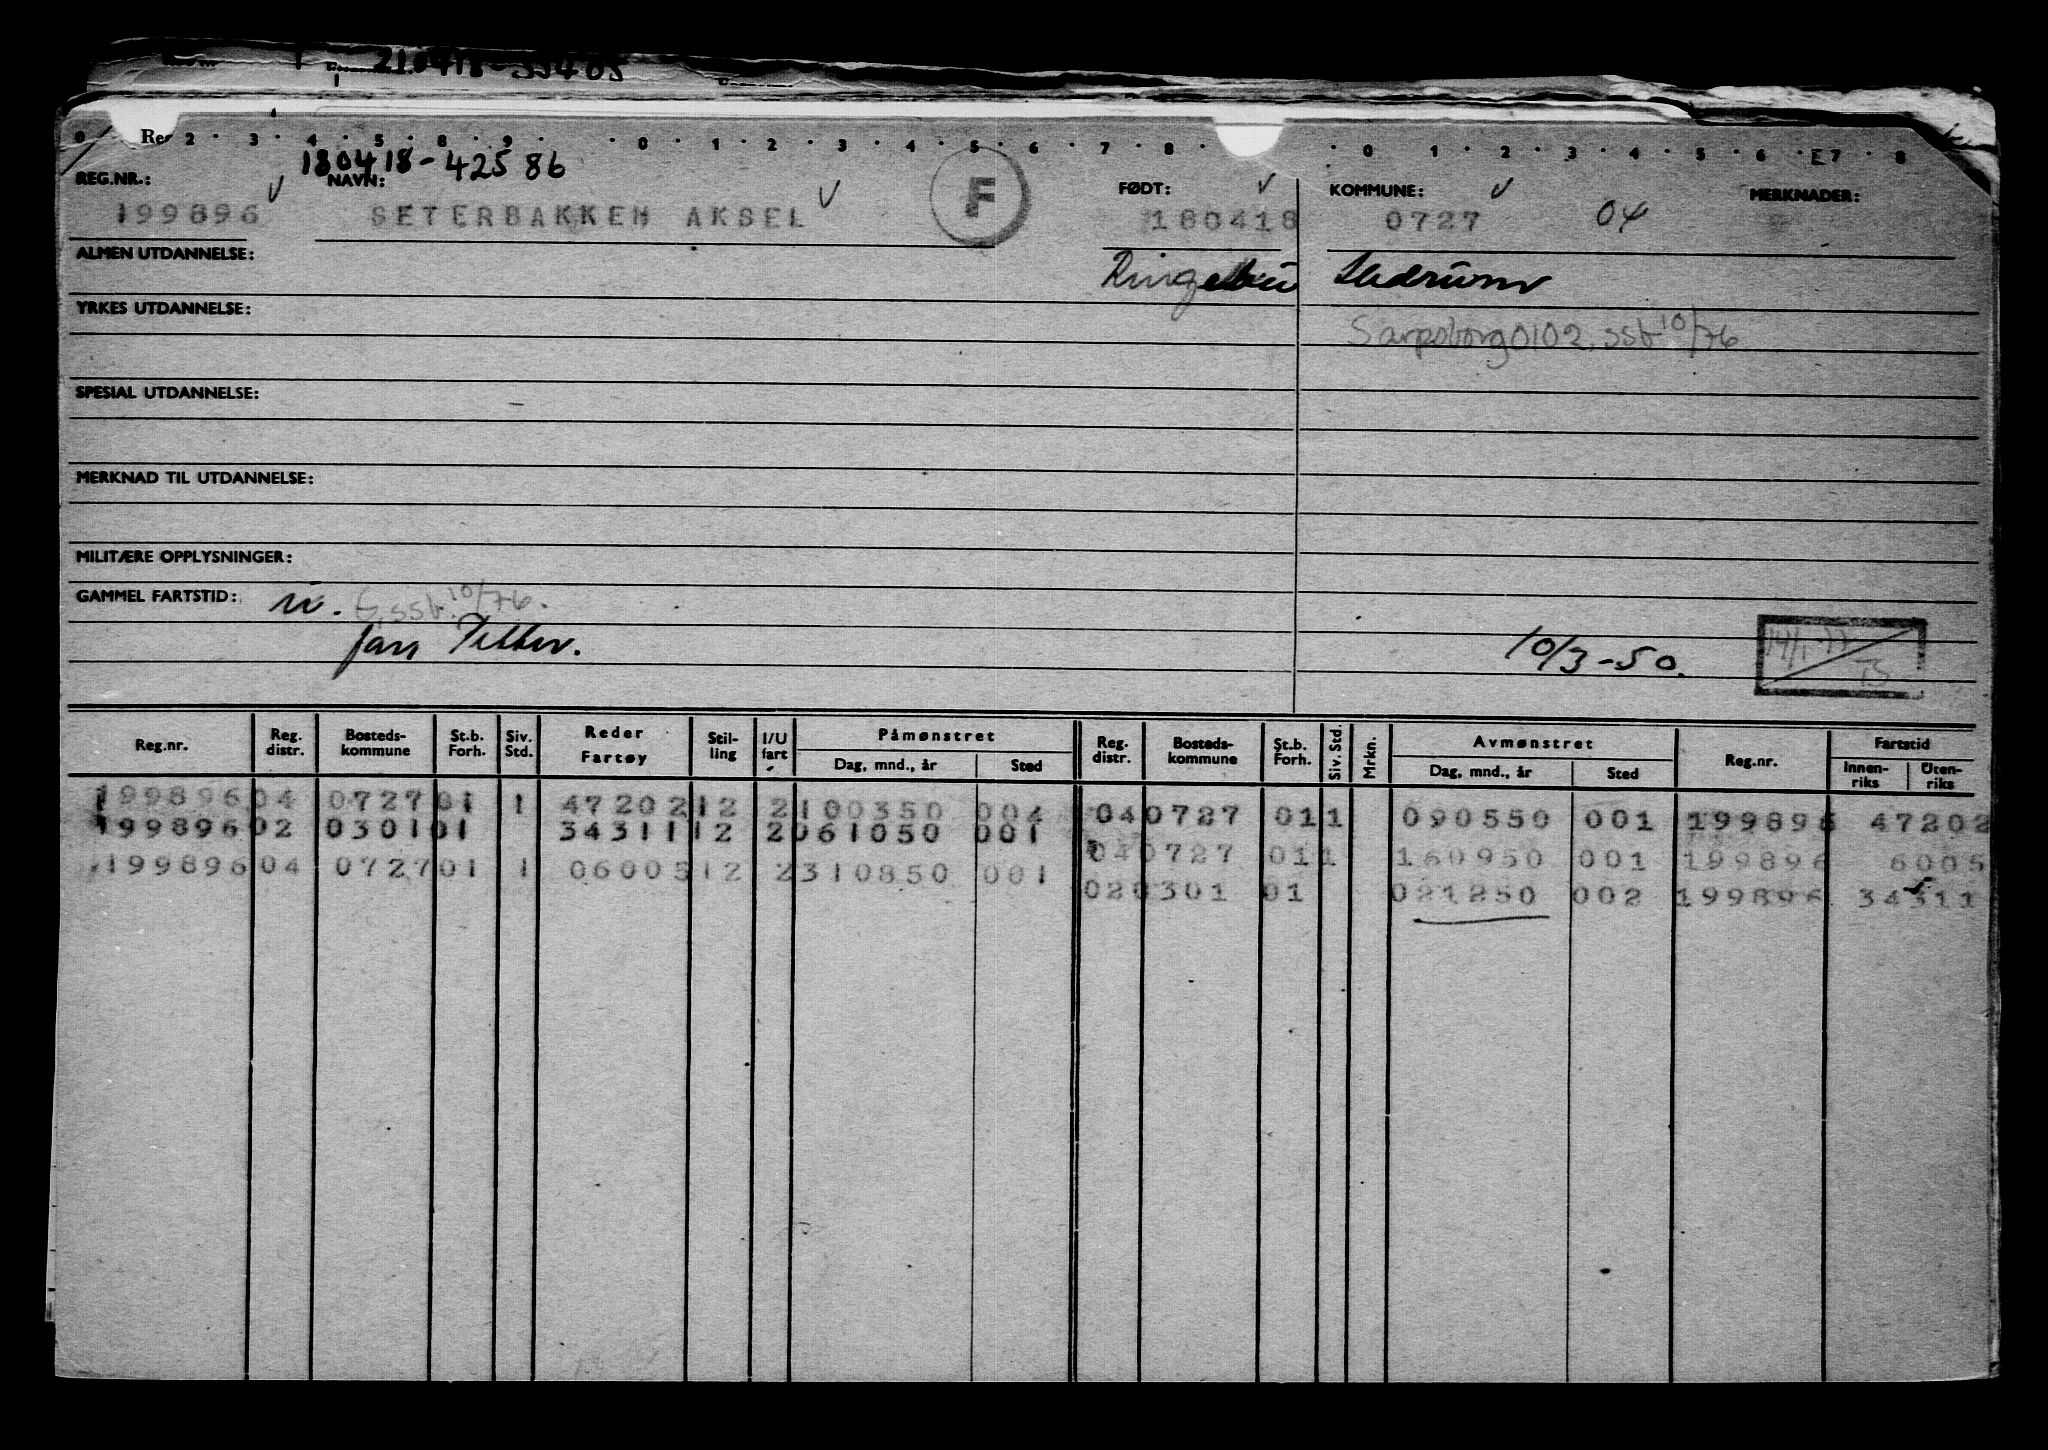 210418-35405
Reg
180418-42586
REG.NR.: NAVN: FØDT: KOMMUNE: MERKNADER:
199896 SETERBAKKEN AKSEL F 180418 0727 04
ALMEN UTDANNELSE: Ringebu
YRKES UTDANNELSE: Sarpsborg 0102, sst 10/76
SPESIAL UTDANNELSE:
MERKNAD TIL UTDANNELSE:
MILITÆRE OPPLYSNINGER:
GAMMEL FARTSTID: sst. 10/76.
10/3-50. 14/1-77 TS
Reg.nr. Reg. distr. Bosteds-kommune St.b. Forh. Siv. Std. Reder Fartøy Stil-ling I/U fart Påmønstret Dag, mnd., år Sted Reg. distr. Bosteds-kommune St.b. Forh. Siv. Std. Mrkn. Avmønstret Dag, mnd., år Sted Reg.nr. Fartstid Innen-riks Uten-riks
199896 04 0727 01 1 47202 12 2 100350 004 04 0727 01 1 090550 001 199896 47202
199896 02 0301 01 34311 12 2 061050 001 04 0727 01 1 160950 001 199896 6005
199896 04 0727 01 1 06005 12 2 310850 001 02 0301 01 021250 002 199896 34311